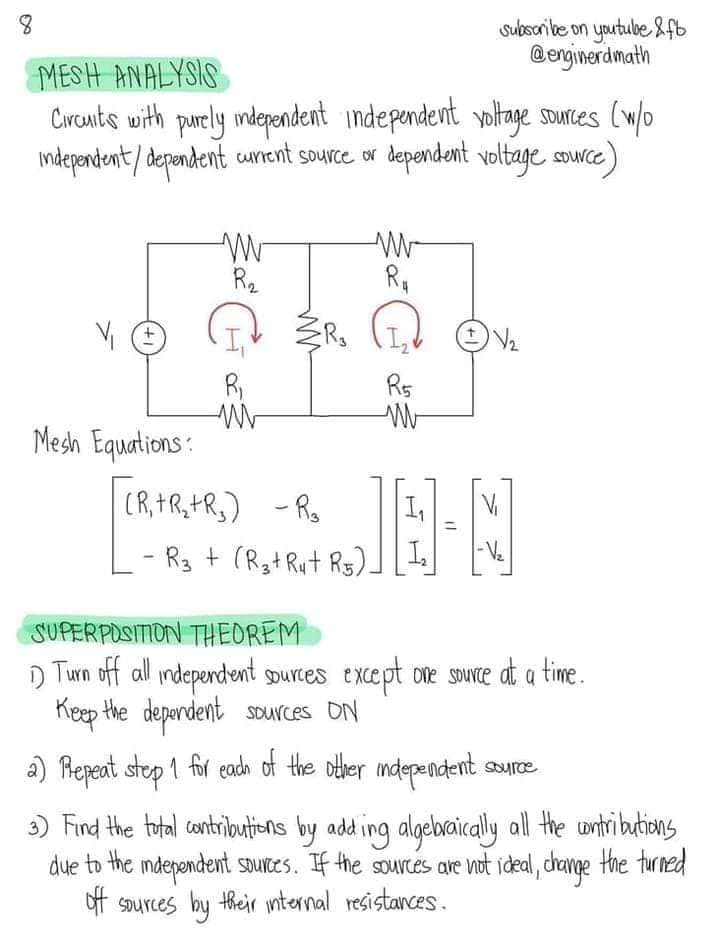 8
subscribe on youtube & fb
@enginerdmath
MESH ANALYSIS
Circuits with purely independent independent voltage sources (w/o
independent/dependent current source or dependent voltage source)
R₂
R₄
V₁
+
I₁
R₃
I₂
+
V₂
R₁
R₅
Mesh Equations:
[(R₁+R₂+R₃) - R₃] [I₁] = [V₁]
[- R₃ + (R₃+R₄+R₅)] [I₂] [-V₂]
SUPERPOSITION THEOREM
1) Turn off all independent sources except one source at a time.
Keep the dependent sources ON
2) Repeat step 1 for each of the other independent source
3) Find the total contributions by adding algebraically all the contributions
due to the independent sources. If the sources are not ideal, change the turned
off sources by their internal resistances.